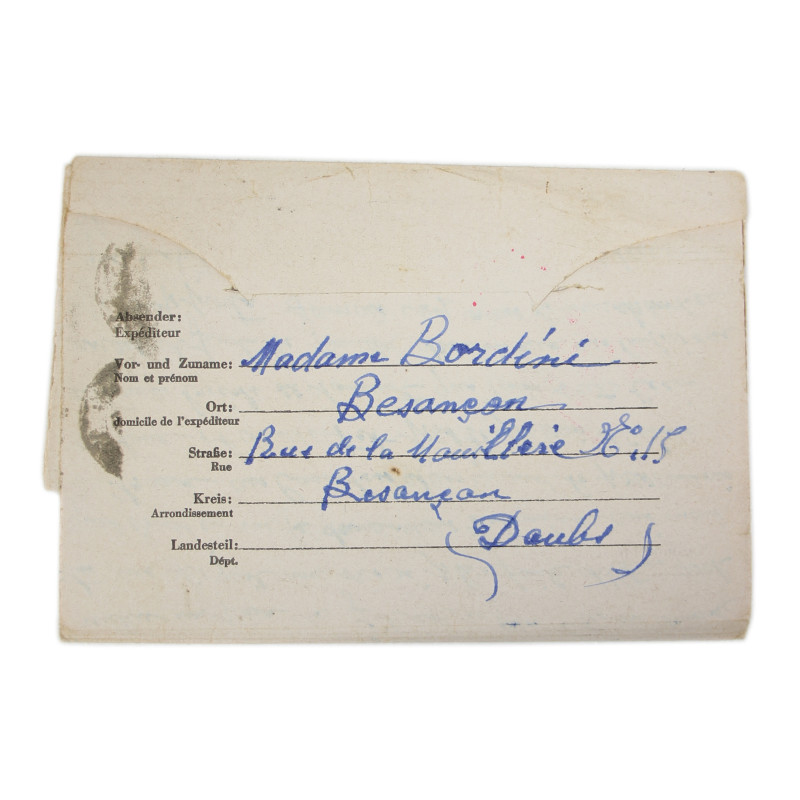 Absender:
Expéditeur
Vor- und Zuname: Madame Bordéni
Nom et prénom
Ort: Besançon
domicile de l'expéditeur
Straße: Rue de la Mouillère No. 15
Rue
Kreis: Besançon
Arrondissement
Landesteil: (Doubs)
Dépt.